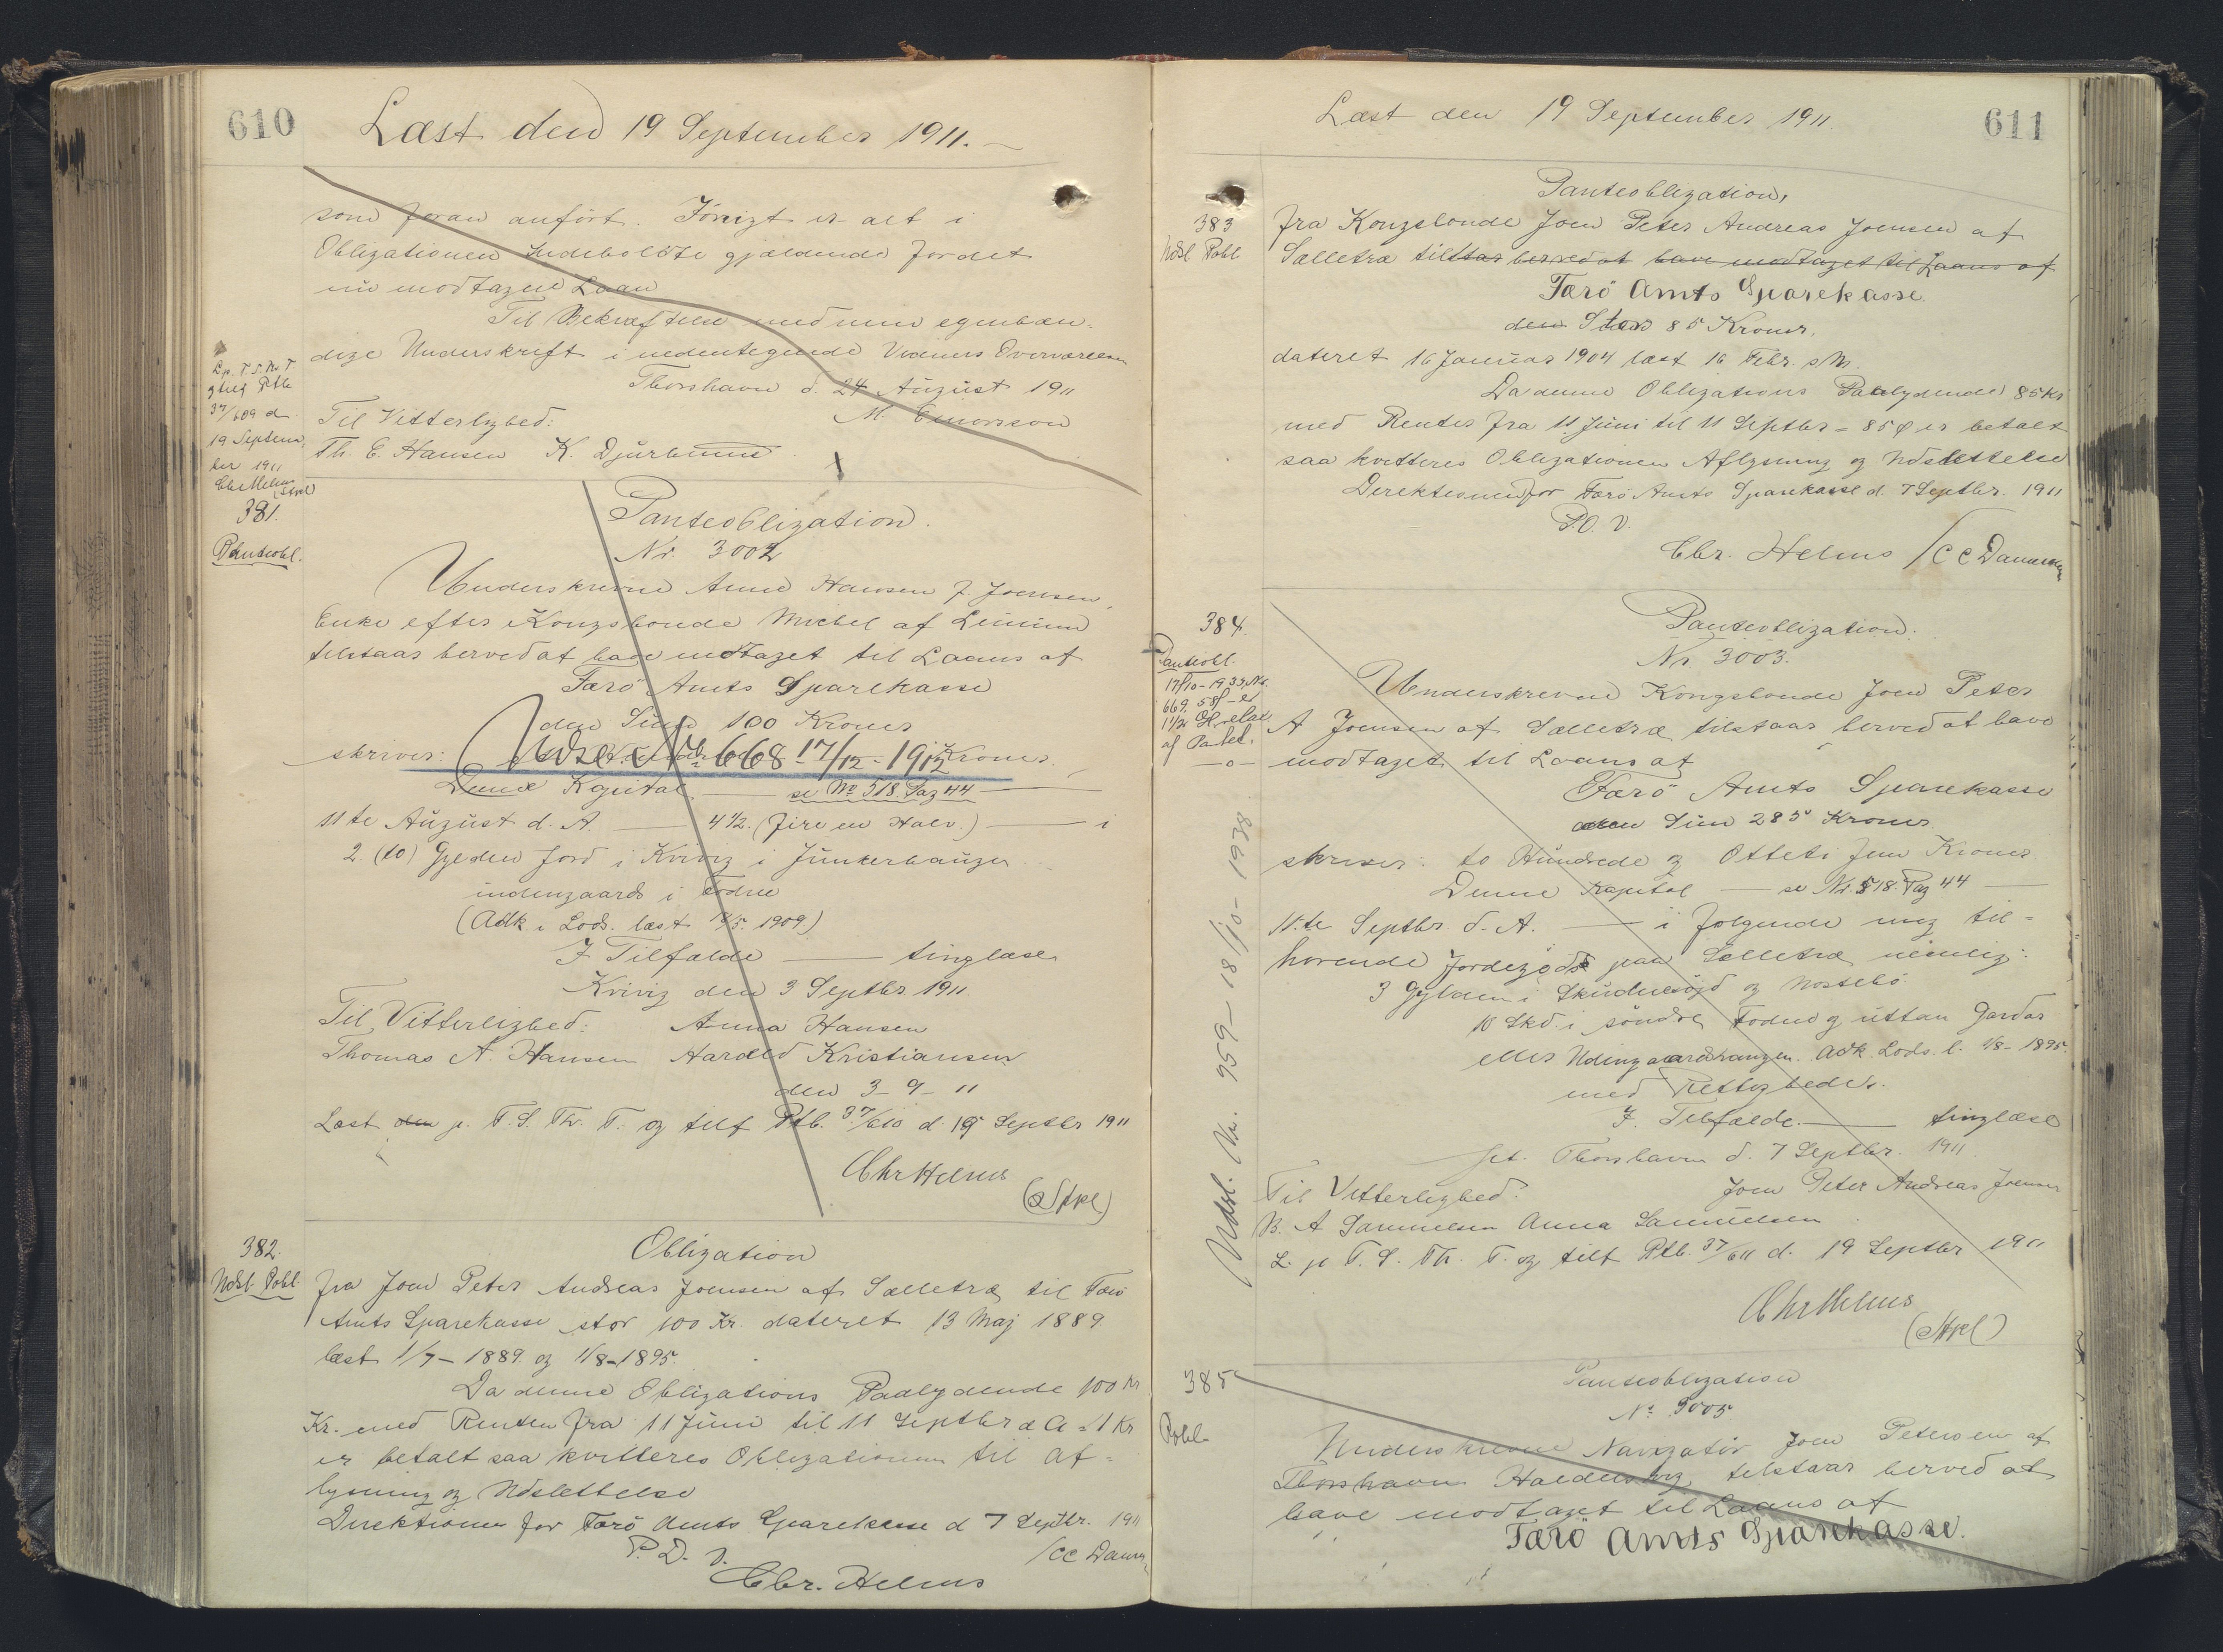 610
Læst den 19 September 1911.
som foran anført. Iøvrigt er alt i
Obligationen Indeholdte gjældende for det
nu modtagne Laan
Til Bekræftelse med min egenhæn-
dige Underskrift i nedentegnede Vidners Overværelse
Thorshavn d. 24 August 1911
Til Vitterlighed: M.
Th. E. Hansen K. Djurhuus
L. p. T. S. Th. T
g tilf Ptb
37/609 d.
19 Septem
ber 1911
Chr Helms
(Stpl)
381.
Panteobl.
Panteobligation.
Nr. 3002
Underskrevne Anne Hansen f. Joensen,
Enke efter Kongsbonde Michel af
tilstaar herved at have modtaget til Laans af
Færö Amts Sparekasse
den Sum 100 Kroner
skriver: Kroner.
Udsl. No 668 17/12 - 1912
Denne Kapital — se No 518 Pag 44 —
11te August d. A. — 4 1/2. (fire en Halv.) — i
2. (to) Gylden Jord i Kvivig i Junkerhaugen
indengaards i Todne
(Adk i Lods. læst 19/5. 1909)
I Tilfælde — tinglæse
Kvivig den 3 Septbr. 1911.
Til Vitterlighed: Anna Hansen
Thomas N. Hansen Harald Kristiansen
den 3 - 9 - 11
Læst den p. T. S. Th. T. og tilf Ptb. 37/610 d. 19 Septbr 1911
Chr Helms
(Stpl)
382.
Udsl Pobl.
Obligation
fra Joen Peter Andreas Joensen af Sælletræ til Færö
Amts Sparekasse stor 100 Kr. dateret 13 Maj 1889
læst 1/7 - 1889 og 1/8 - 1895.
Da denne Obligations Paalydende 100 Kr
Kr. med Renten fra 11 Juni til 11 Septbr d A = 1 Kr
er betalt saa kvitteres Obligationen til Af-
lysning og Udslettelse
Direktionen for Færö Amts Sparekasse d 7 Septbr. 1911
P. D. V. /CC
Chr. Helms
Læst den 19 September 1911.
611
383
Udsl Pobl
Panteobligation,
fra Kongsbonde Joen Peter Andreas Joensen af
Sælletræ tilstaar herved at have modtaget til Laans af
Færö Amts Sparekasse.
den Stor 85 Kroner.
dateret 16 Januar 1904 læst 16 Febr. s. M.
Da denne Obligations Paalydende 85 Kr
med Renter fra 11 Juni til 11 Septbr = 85 Ø er betalt
saa kvitteres Obligationen Aflysning og Udslettelse
Direktionen for Færö Amts Sparekasse d. 7 Septbr. 1911
P. D. V.
Chr. Helms /CC
384.
Panteobl.
17/10 - 1933, No.
669.
af Pantet.
— o —
Udsl. Nr. 959 - 18/10 - 1938
Panteobligation.
Nr. 3003.
Underskrevne Kongsbonde Joen Peter
A Joensen af Sælletræ tilstaar herved at have
modtaget til Laans af
Færö Amts Sparekasse
den Sum 285 Kroner
skriver: to Hundrede og Otteti fem Kroner
Denne Kapital — se Nr. 518 Pag 44 —
11.te Septbr. d. A. — i følgende mig til-
hørende Jordegods paa Sælletræ nemlig:
3 Gylden i og
10 Skd. i söndre Todne og uttan Gardar
eller Udengaardhaugen. Adk. Lods. l. 1/8 - 1895.
med Rettigheder.
I. Tilfælde. — tinglæse
pt. Thorshavn d. 7 Septbr. 1911.
Til Vitterlighed: Joen Peter Andreas Joensen
B. A Samuelsen Anna Samuelsen
L. p T. S. Th. T. og tilf Ptb. 37/611 d. 19 Septbr 1911
Chr Helms
(Stpl)
385
Pobl
Panteobligation
No 3005
Underskrevne Navigatör Joen Petersen af
Thorshavn tilstaar herved at
have modtaget til Laans af
Færö Amts Sparekasse.